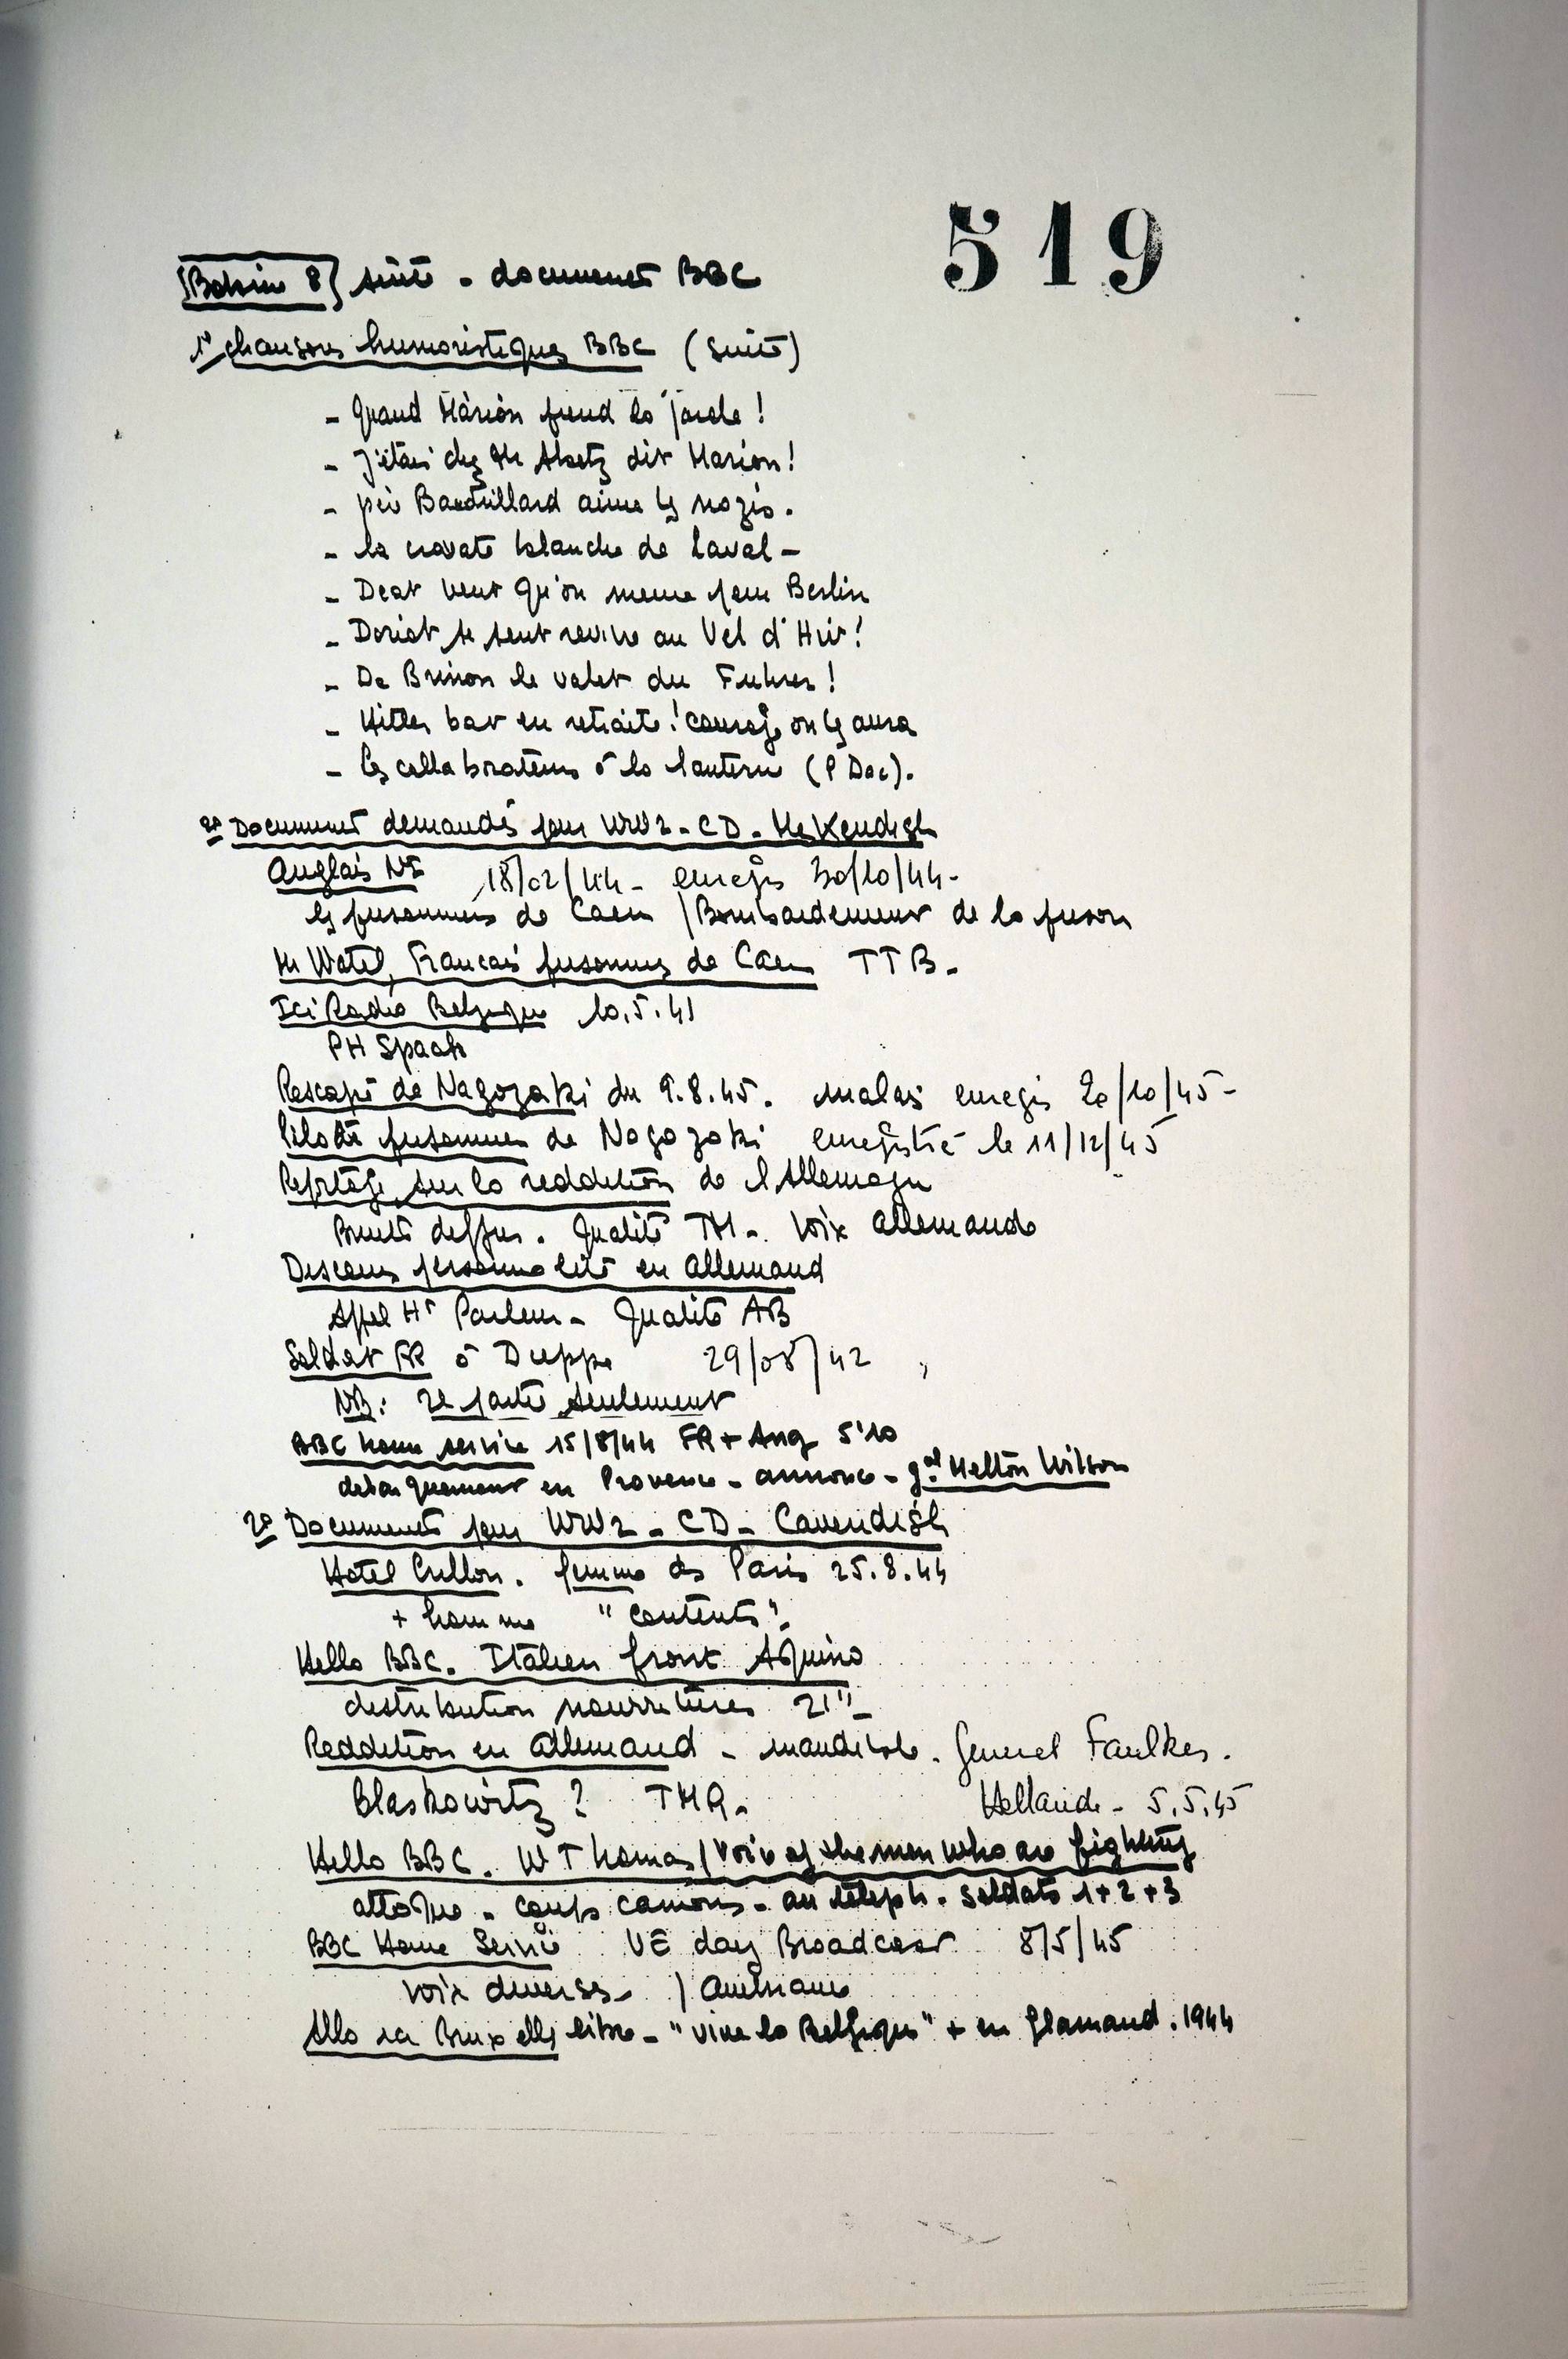 519
Bobine 8 suite - documents BBC
1° chansons humoristiques BBC (suite)
- Quand Marion prend la parole !
- J'étais chez Mr Abetz dit Marion !
- Baudrillard aime les nazis.
- la cravate blanche de Laval -
- Deat veut qu'on meure pour Berlin
- Doriot se sent revivre au Vel d'Hiv !
- De Brinon le valet du Fuhrer !
- Hitler bat en retraite ! courage on les aura
- les collaborateurs à la lanterne (P Dac).
2° Documents demandés pour WW2 - CD -
Anglais N° 18/02/44 - enregis 30/10/44 -
les prisonniers de Caen / Bombardement de la prison
Mr Watel, Francais prisonniers de Caen TTB -
Ici Radio Belgique 10.5.41
PH Spaak
Rescapé de Nagazaki du 9.8.45. malais enregis 20/10/45 -
Pilote prisonnier de Nagazaki enregistré le 11/12/45
Reportage sur la reddition de l'Allemagne
Bruits Qualité TM - Voix allemande
Discours personnalité en allemand
Appel Ht Parleur - Qualité AB
Soldat FR à Dieppe 29/08/42
NB : 2e partie seulement
BBC home service 15/8/44 FR + Ang 5'10
debarquement en Provence - annonce - gal Wilson
2° Documents pour WW2 - CD - Cavendish
Hotel Crillon. femme de Paris 25.8.44
+ homme "contents".
Hello BBC. Italien front Aquino
distribution nourritures 21" -
Reddition en allemand - inaudible. General Faulkes.
Blaskowitz ? Hollande - 5.5.45
Hello BBC. W Thomas / Voix of the men who are fighting
attaque - coups canons - au téleph. soldats 1+2+3
BBC Home Service VE day Broadcast 8/5/45
voix diverses - / américaine
Allo ici Bruxelles libre - "vive la Belgique" + en flamand. 1944